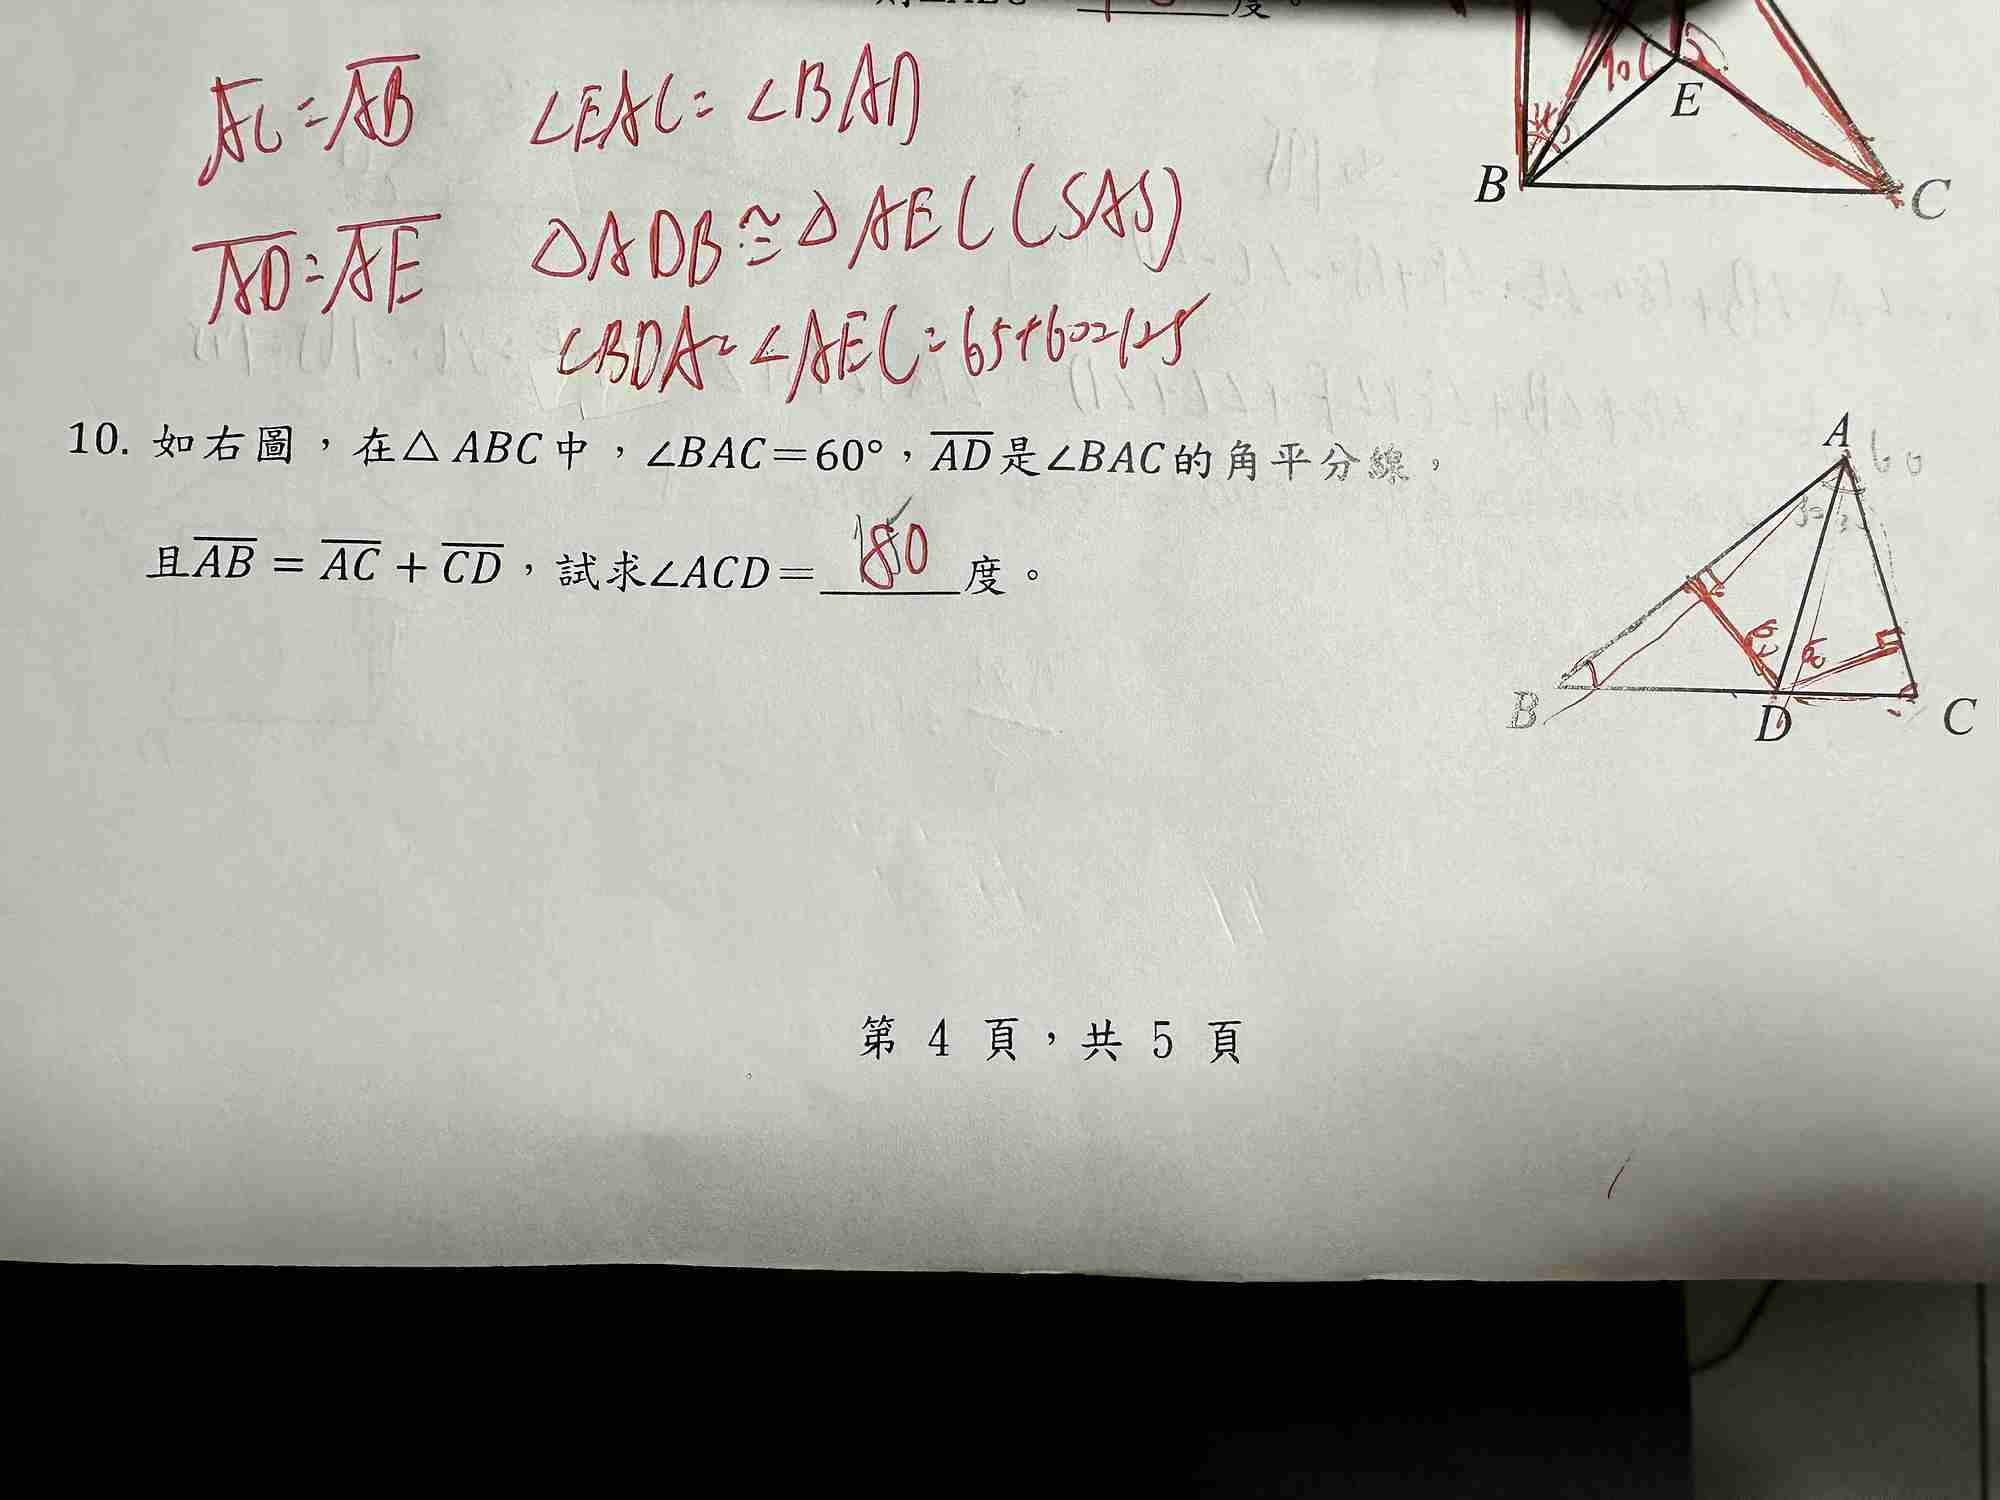 度。
E
B
C
AC=AB ∠EAC=∠BAD
AD=AE △ADB≅△AEC(SAS)
∠BDA=∠AEC=65+60=125
10. 如右圖,在△ABC中,∠BAC=60°,AD是∠BAC的角平分線,
且AB=AC+CD,試求∠ACD=80度。
A
60
B
D
C
第 4 頁,共 5 頁